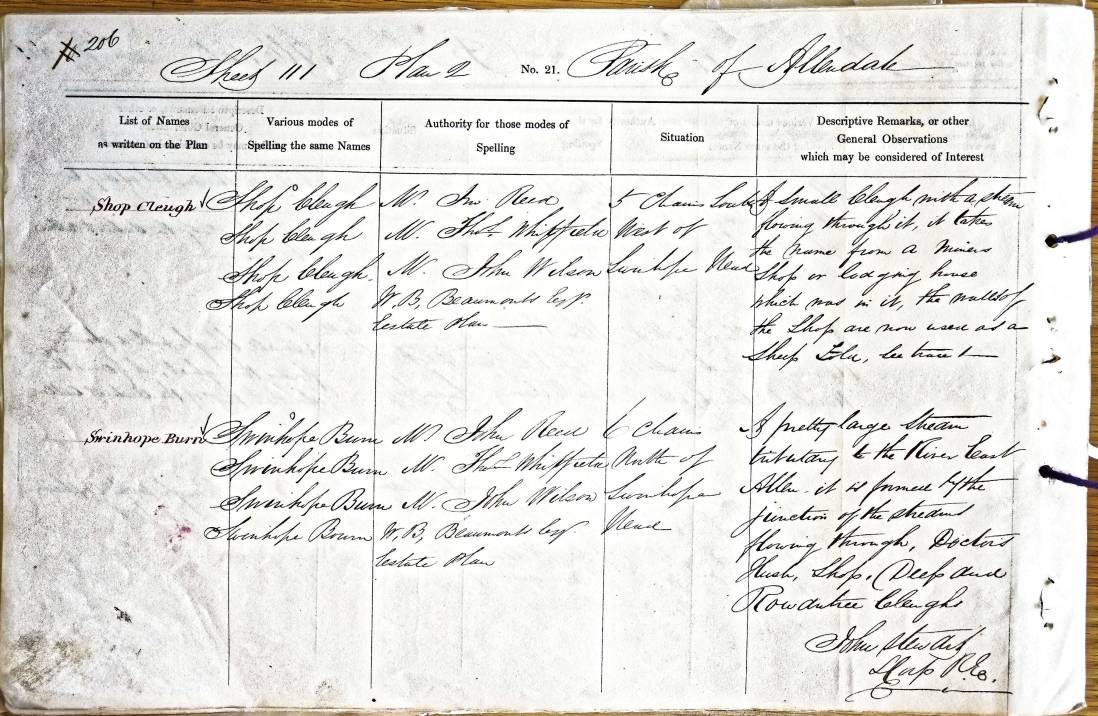 206
Sheet 111 Plan 2 No. 21. Parish of Allendale
List of Names
as written on the Plan
Various modes of
Spelling the same Names
Authority for those modes of
Spelling
Situation
Descriptive Remarks, or other
General Observations
which may be considered of Interest
Shop Cleugh
Shop Cleugh
Shop Cleugh
Shop Cleugh.
Shop Cleugh
Mr. Jno. Reed
Mr. Thos. Whitfield
Mr. John Wilson
W. B. Beaumonts Esqr.
Estate Plan
5 Chains South
West of
Swinhope Head
A small Cleugh with a stream
flowing through it, it takes
the name from a miners
Shop or lodging house
which was in it, the walls of
the Shop are now used as a
Sheep Fold, See trace 1
Swinhope Burn
Swinhope Burn
Swinhope Burn
Swinhope Burn
Swinhope Bourn
Mr. John Reed
Mr. Thos. Whitfield
Mr. John Wilson
W. B. Beaumonts Esqr.
Estate Plan
6 Chains
North of
Swinhope
Head
A pretty large Stream
tributary to the River East
Allen. it is formed by the
junction of the streams
flowing through, Doctors
Hush, Shop, Deep and
Rowantree Cleughs
John Stewart
Corp R.E.